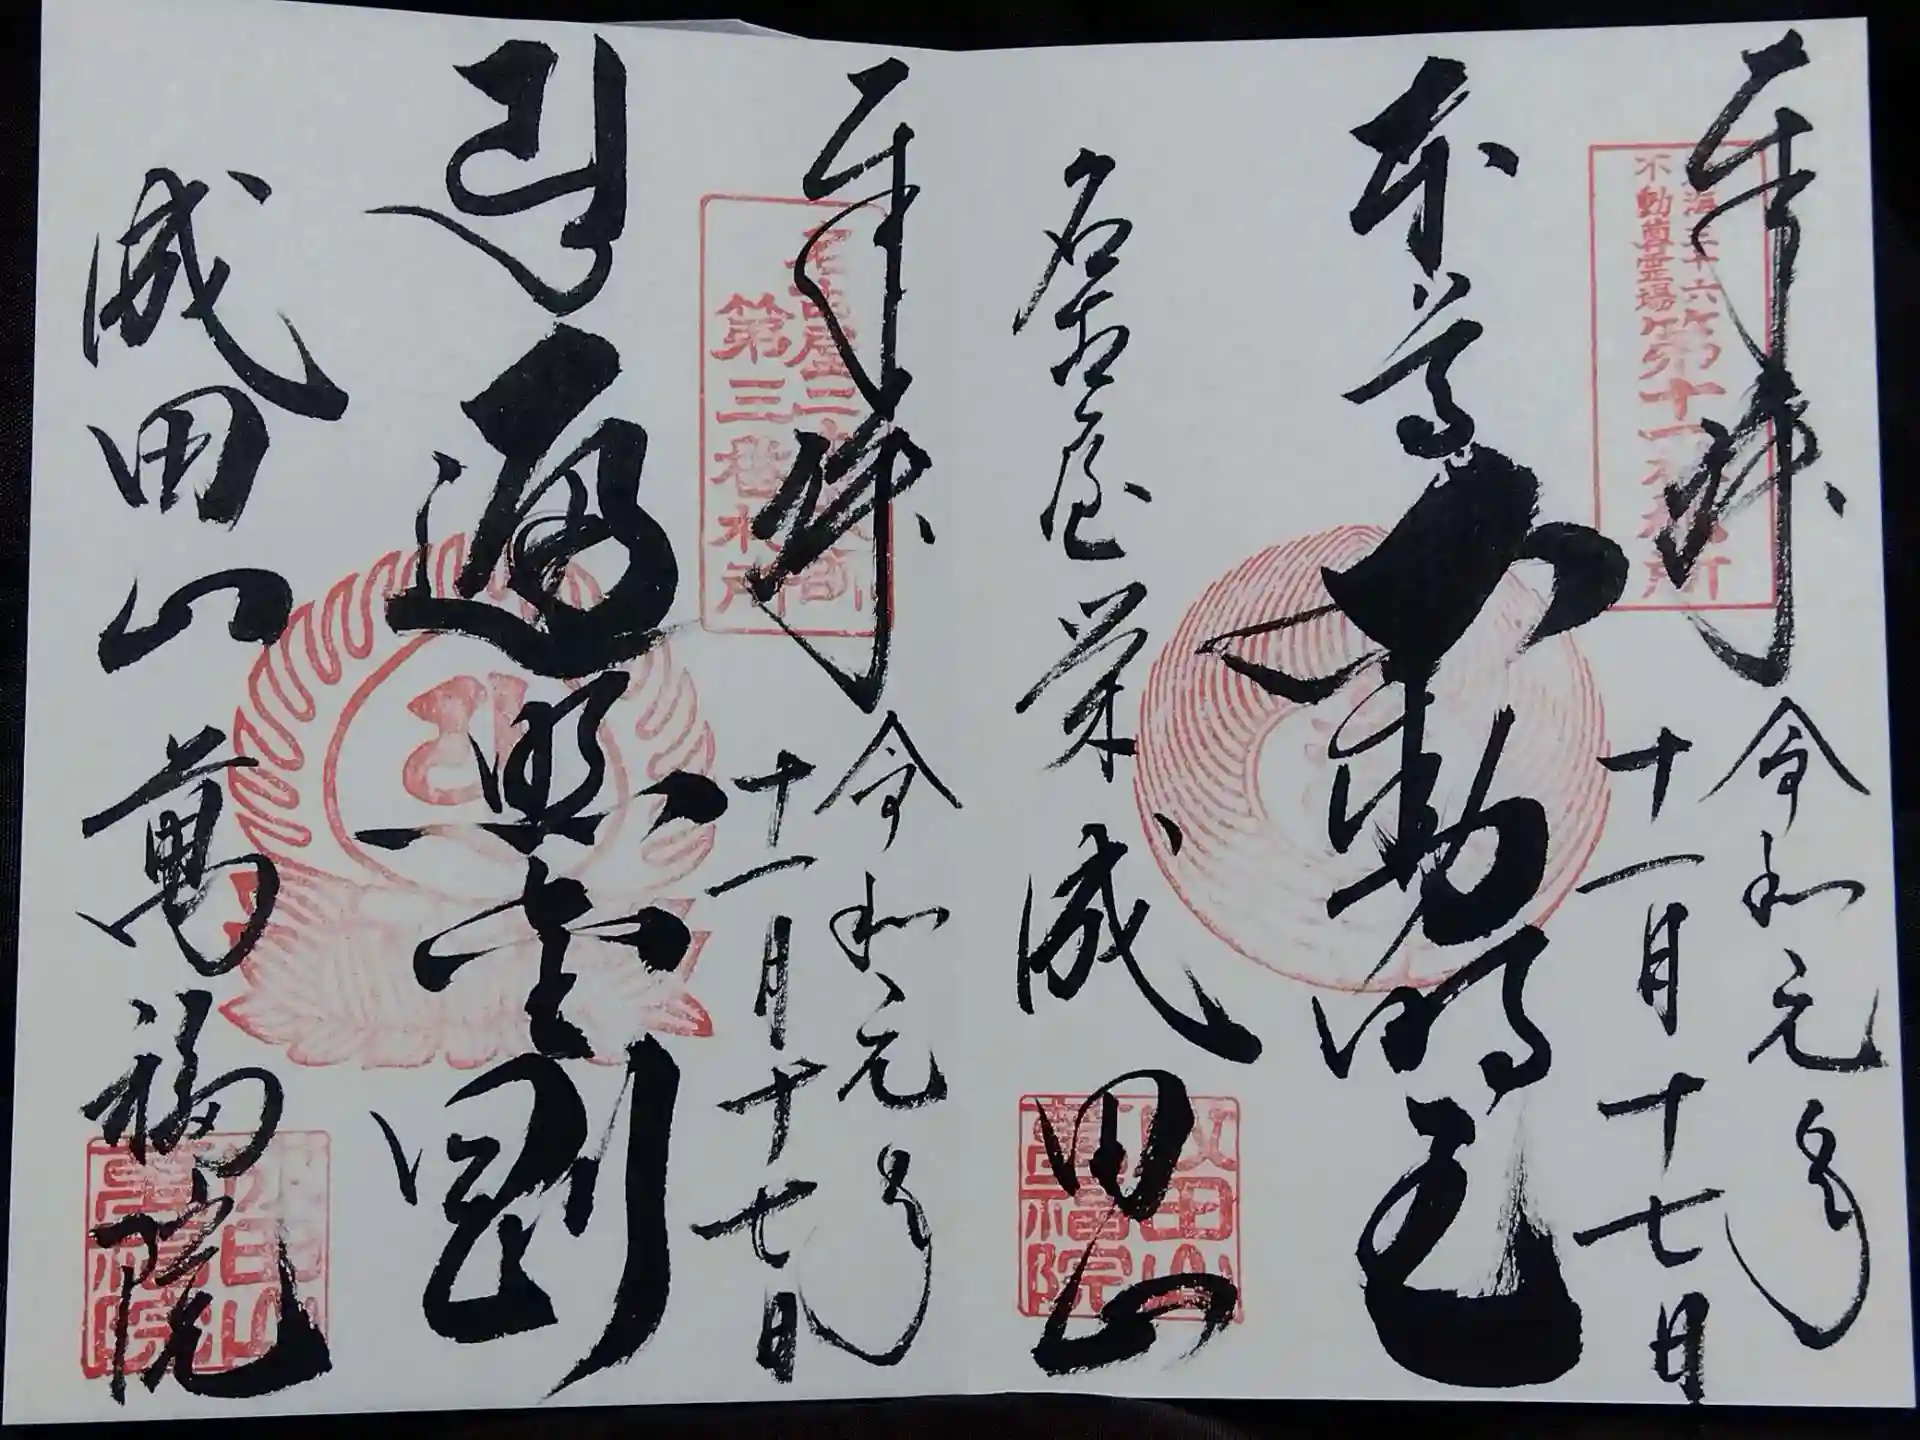 奉拝
令和元年
十一月十七日
東海三十六
不動尊霊場
第十一番札所
本尊
不動明王
名古屋栄
成田山
成田山
萬福院
奉拝
令和元年
十一月十七日
名古屋二十一大師
第三番札所
遍照金剛
成田山
萬福院
成田山
萬福院